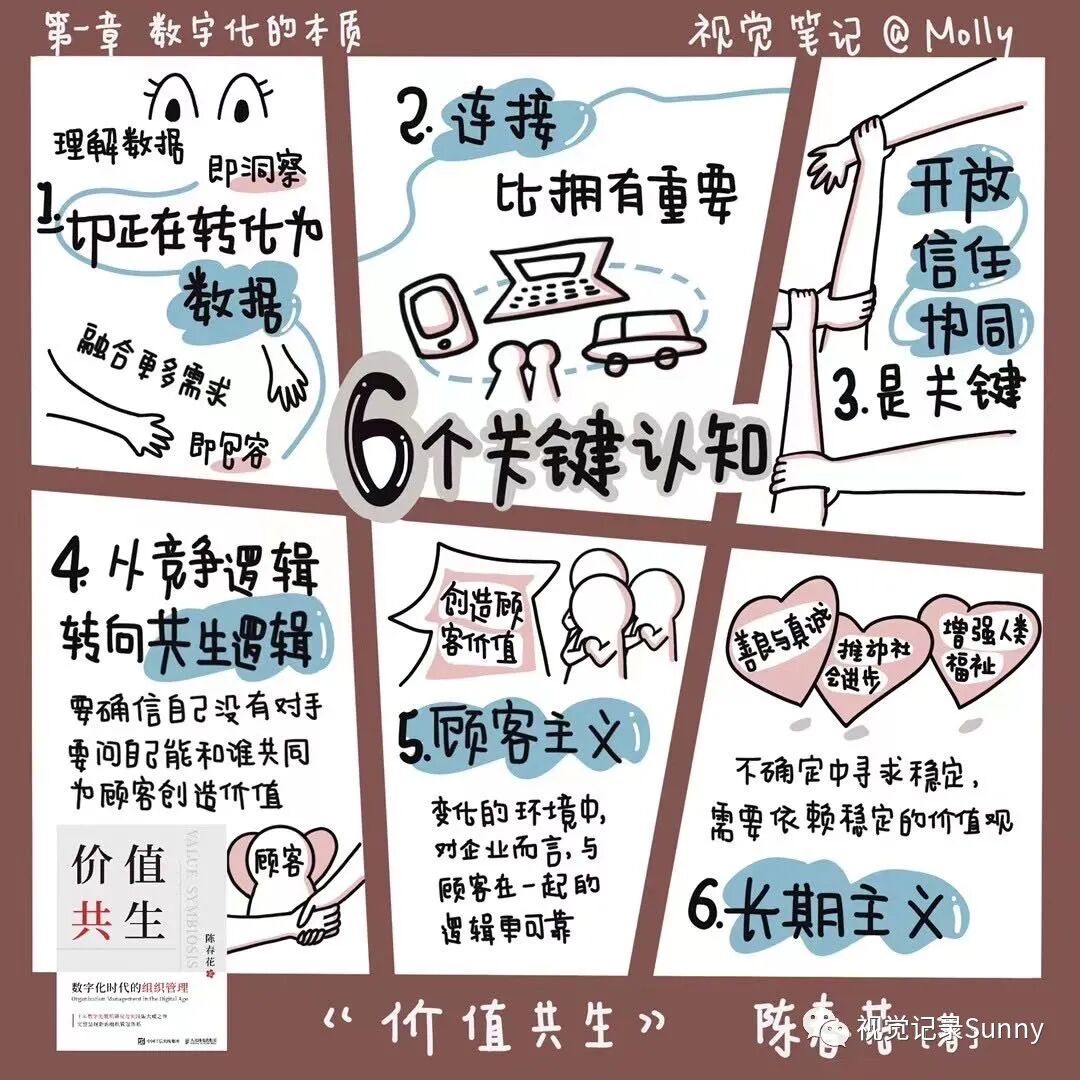 第一章 数字化的本质
视觉笔记@Molly
理解数据
即洞察
1.
切正在转化为
数据
融合更多需求
即包容
2. 连接
比拥有重要
开放
信任
协同
3.是关键
6个关键认知
4. 从竞争逻辑
转向共生逻辑
要确信自己没有对手
要问自己能和谁共同
为顾客创造价值
顾客
创造顾
客价值
5.顾客主义
变化的环境中,
对企业而言,与
顾客在一起的
逻辑更可靠
善良与真诚
推动社
会进步
增强人类
福祉
不确定中寻求稳定,
需要依赖稳定的价值观
6.长期主义
价值
共生
VALUE SYMBIOSIS
陈春花
数字化时代的组织管理
Organization Management in the Digital Age
“价值共生” 陈春花
视觉记录Sunny